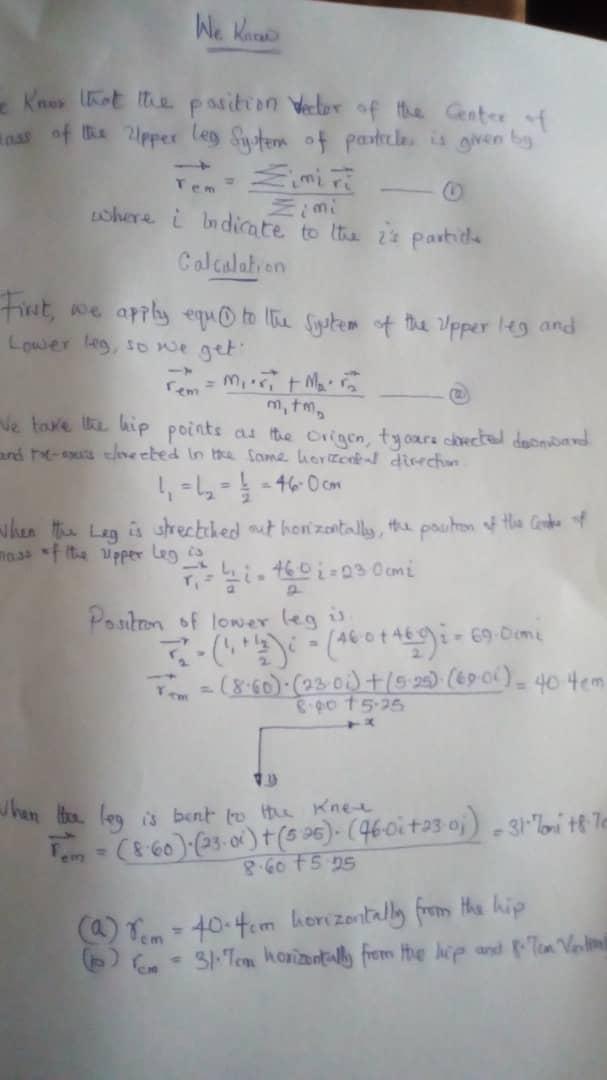 We Know
e Know that the position Vector of the Center of
mass of the Upper leg System of particles is given by
r⃗cm = Σimi r⃗i / Σimi —— ①
where i indicate to the i's particle
Calculation
First, we apply equ① to the System of the Upper leg and
Lower leg, so we get:
r⃗cm = m₁·r⃗₁ + M₂·r⃗₂ / m₁+m₂ —— ②
We take the hip points as the origin, +y axis directed downward
and +x-axis directed in the same horizontal direction.
l₁ = L₂ = L/2 = 46.0cm
When the Leg is strectched out horizontally, the position of the Centre of
mass of the Upper Leg is
r⃗₁ = L₁/2 i = 46.0/2 i = 23.0cmi
Position of lower leg is
r⃗₂ = (l₁ + l₂/2)i = (46.0+46.0/2)i = 69.0cmi
r⃗cm = (8.60)·(23.0i)+(5.25)·(69.0i) / 8.60+5.25 = 40.4cm
x
y
When the leg is bent to the Knee
r⃗cm = (8.60)·(23.0i)+(5.25)·(46.0i+23.0j) / 8.60+5.25 = 31.7cmi+8.7c
(a) rcm = 40.4cm horizontally from the hip
(b) rcm = 31.7cm horizontally from the hip and 8.7cm